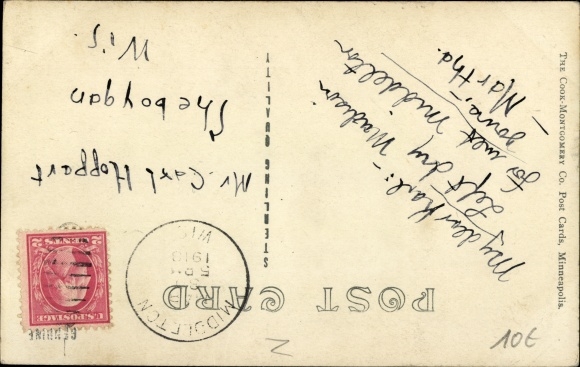 POST CARD
GENUINE
U.S. POSTAGE
2 CENTS 2
MIDDLETON
5 PM
1918
WIS.
STERLING QUALITY
My dear Karl:-
Left dry Madison
for wet Middleton
Yours,
Martha.
Mr. Carl Hoppart
Sheboygan
Wis.
THE COOK-MONTGOMERY CO. Post Cards, Minneapolis.
10€